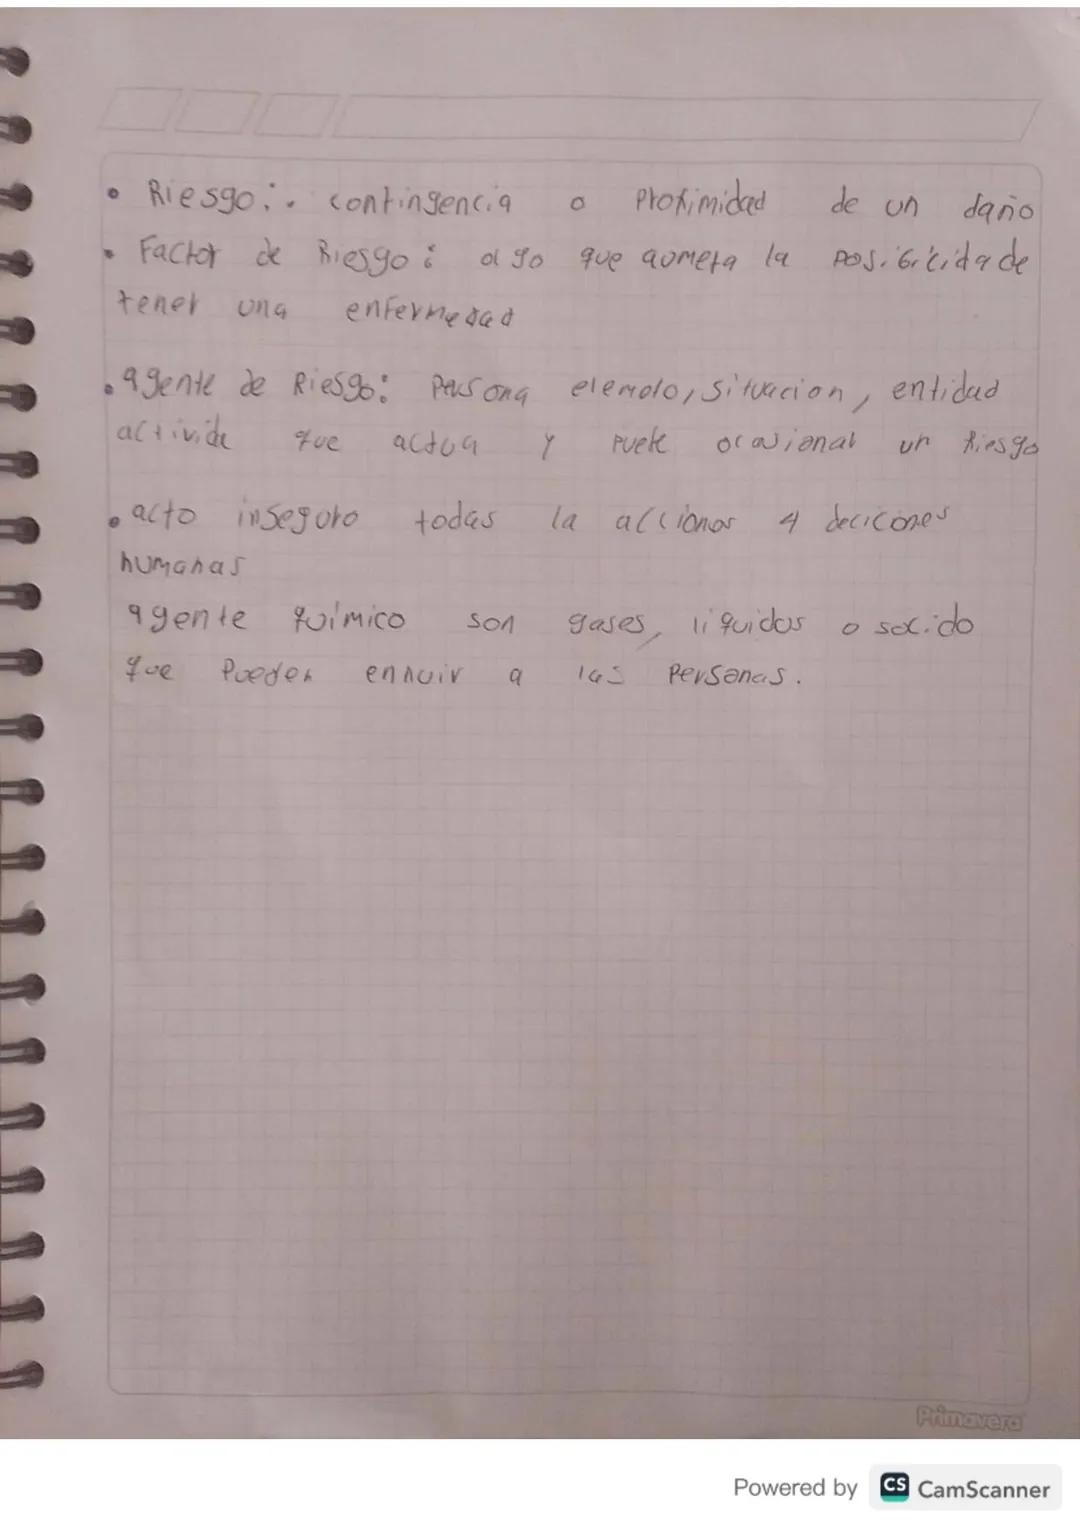 • Riesgo: . contingencia o Proximidad de un daño
• Factor de Riesgo: algo que aumeta la de
tener una enfermedad
• agente de Riesgo: Persona elemeto, situacion, entidad
activide que actua y puede ocasional un Riesgo
• acto inseguro todas la accionos y deciciones
humanas
agente químico son gases, liquidos o solido
que Pueden a las Personas.
Primavera
Powered by CS CamScanner